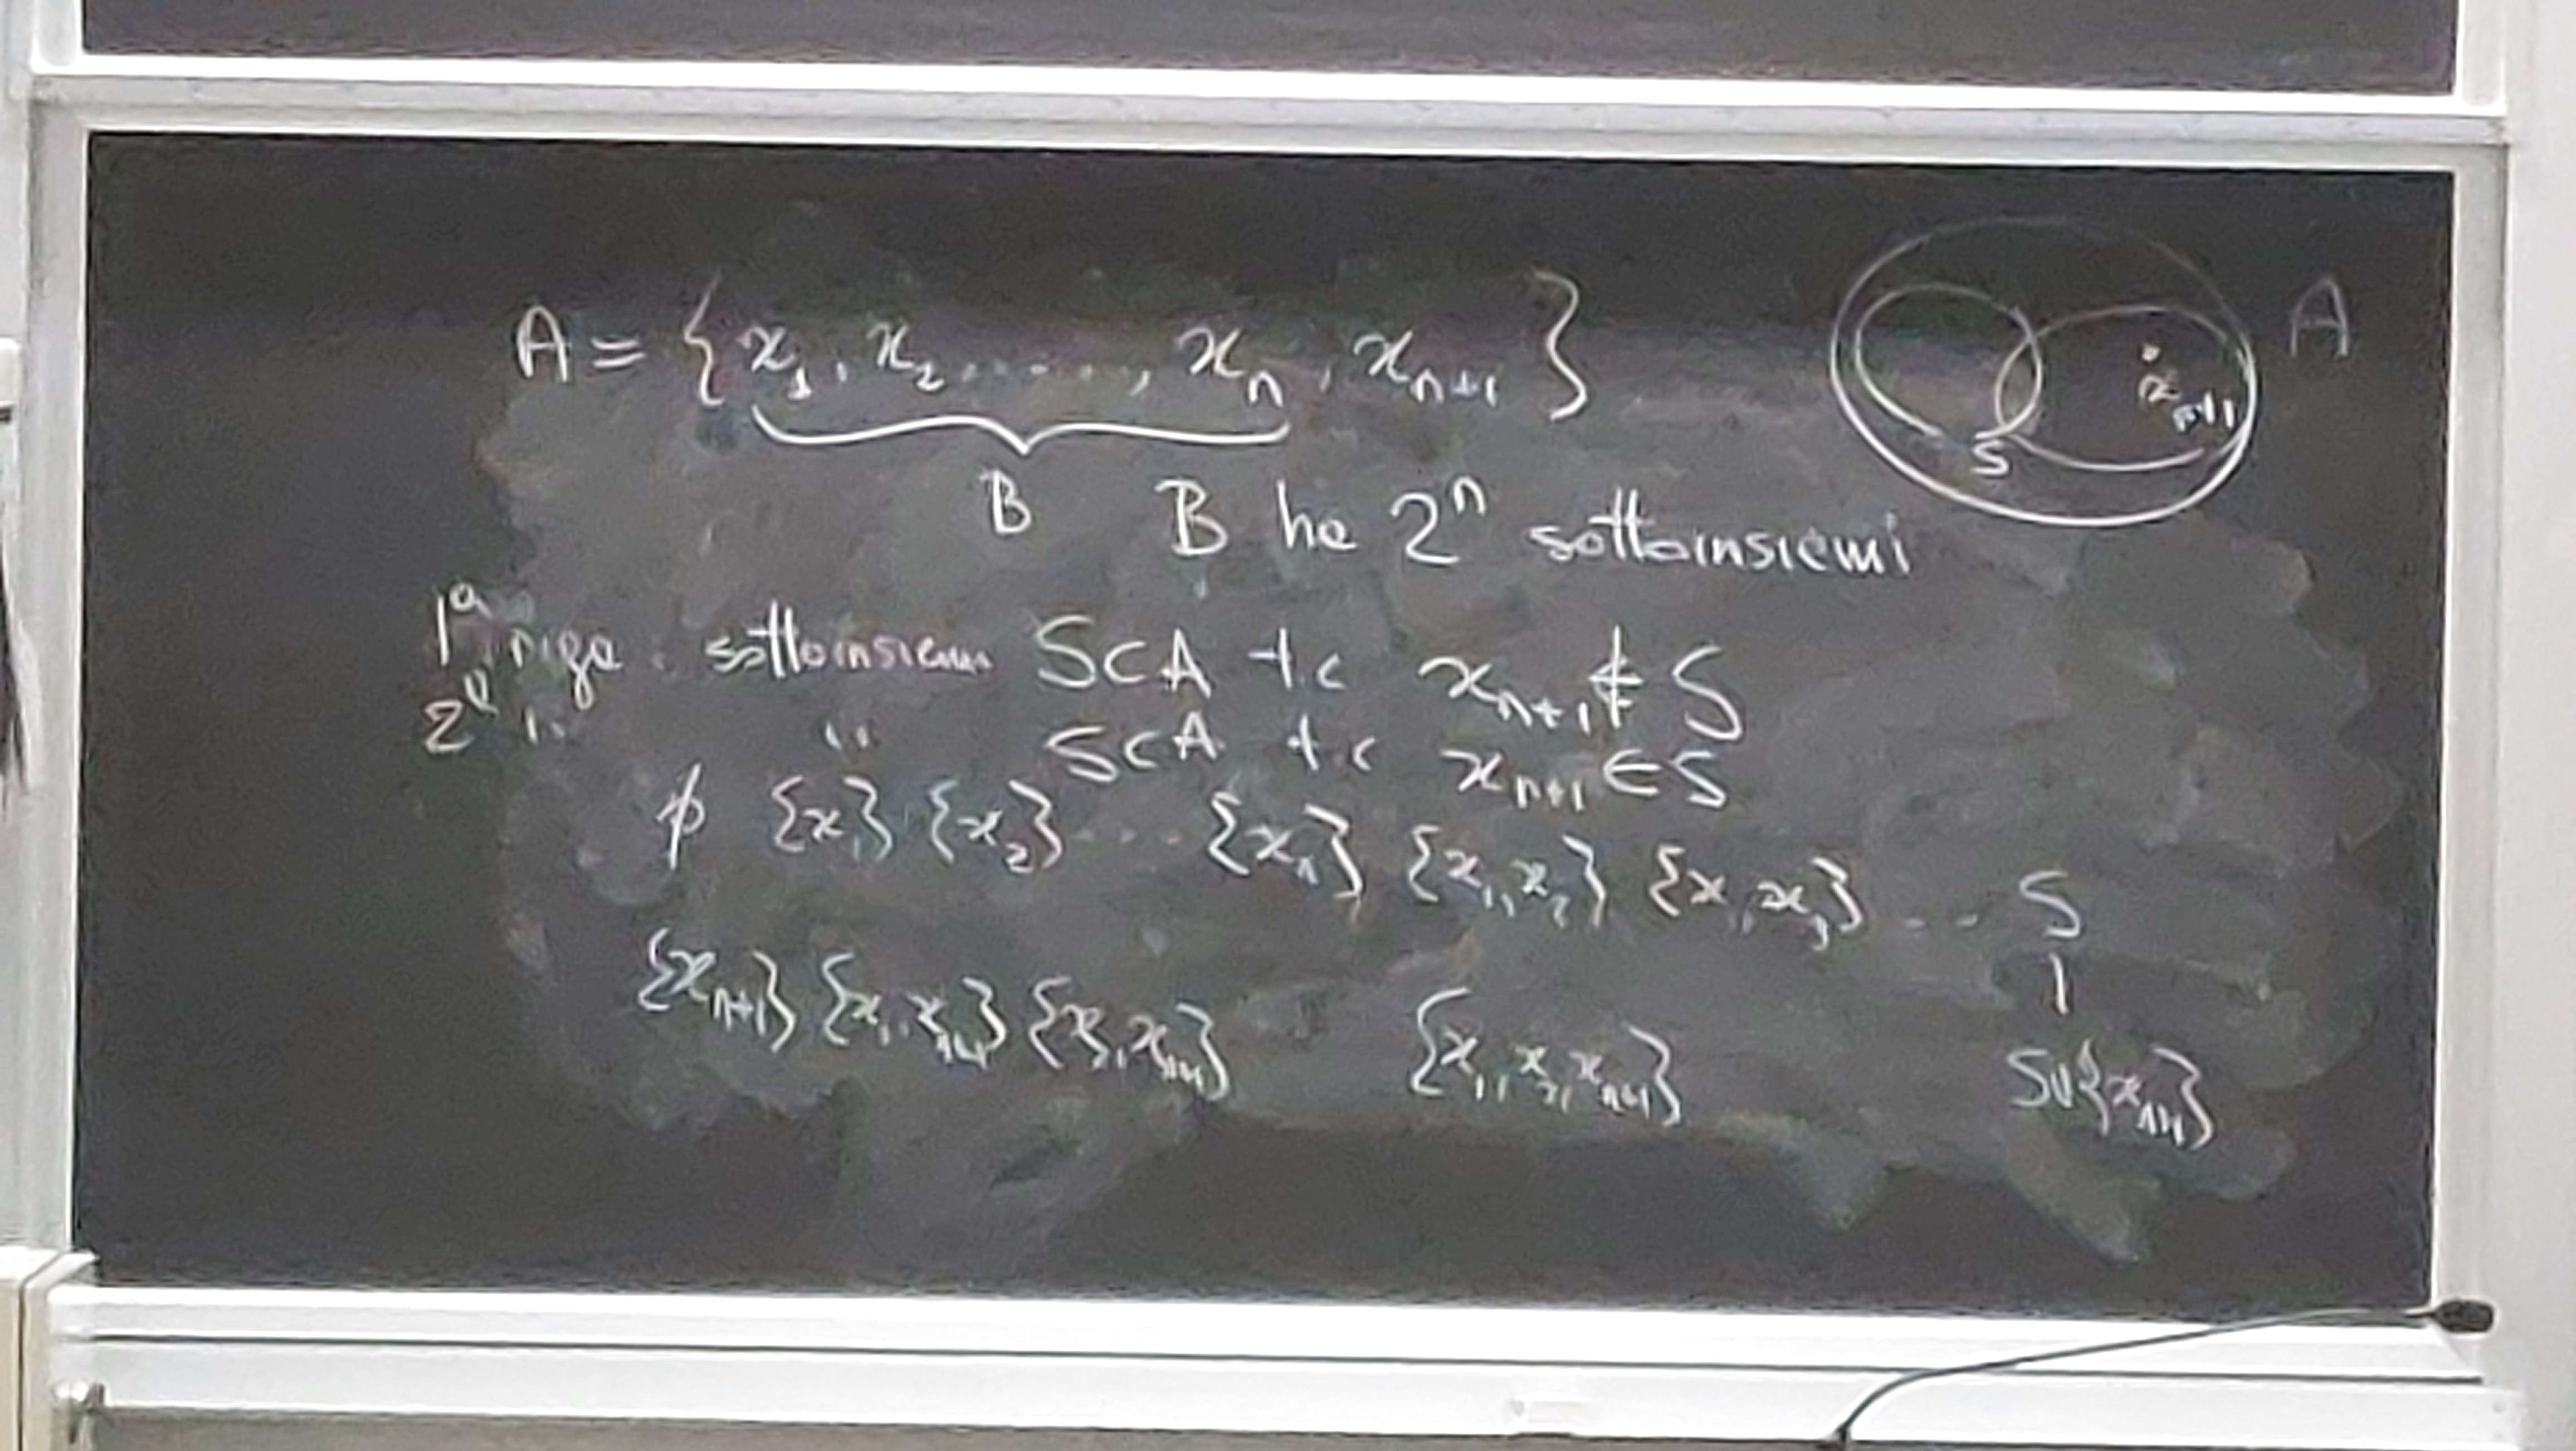 A = { x₁, x₂ ....., xₙ, xₙ₊₁ }
A
xₙ₊₁
S
B B ha 2ⁿ sottoinsiemi
1ª riga sottoinsiemi S⊂A t.c xₙ₊₁ ∉ S
2ª " " S⊂A t.c xₙ₊₁ ∈ S
∅ {x₁} {x₂} .... {xₙ} {x₁,x₂} {x₁,x₃} ... S
|
{xₙ₊₁} {x₁,xₙ₊₁} {x₂,xₙ₊₁} {x₁,x₂,xₙ₊₁} S∪{xₙ₊₁}